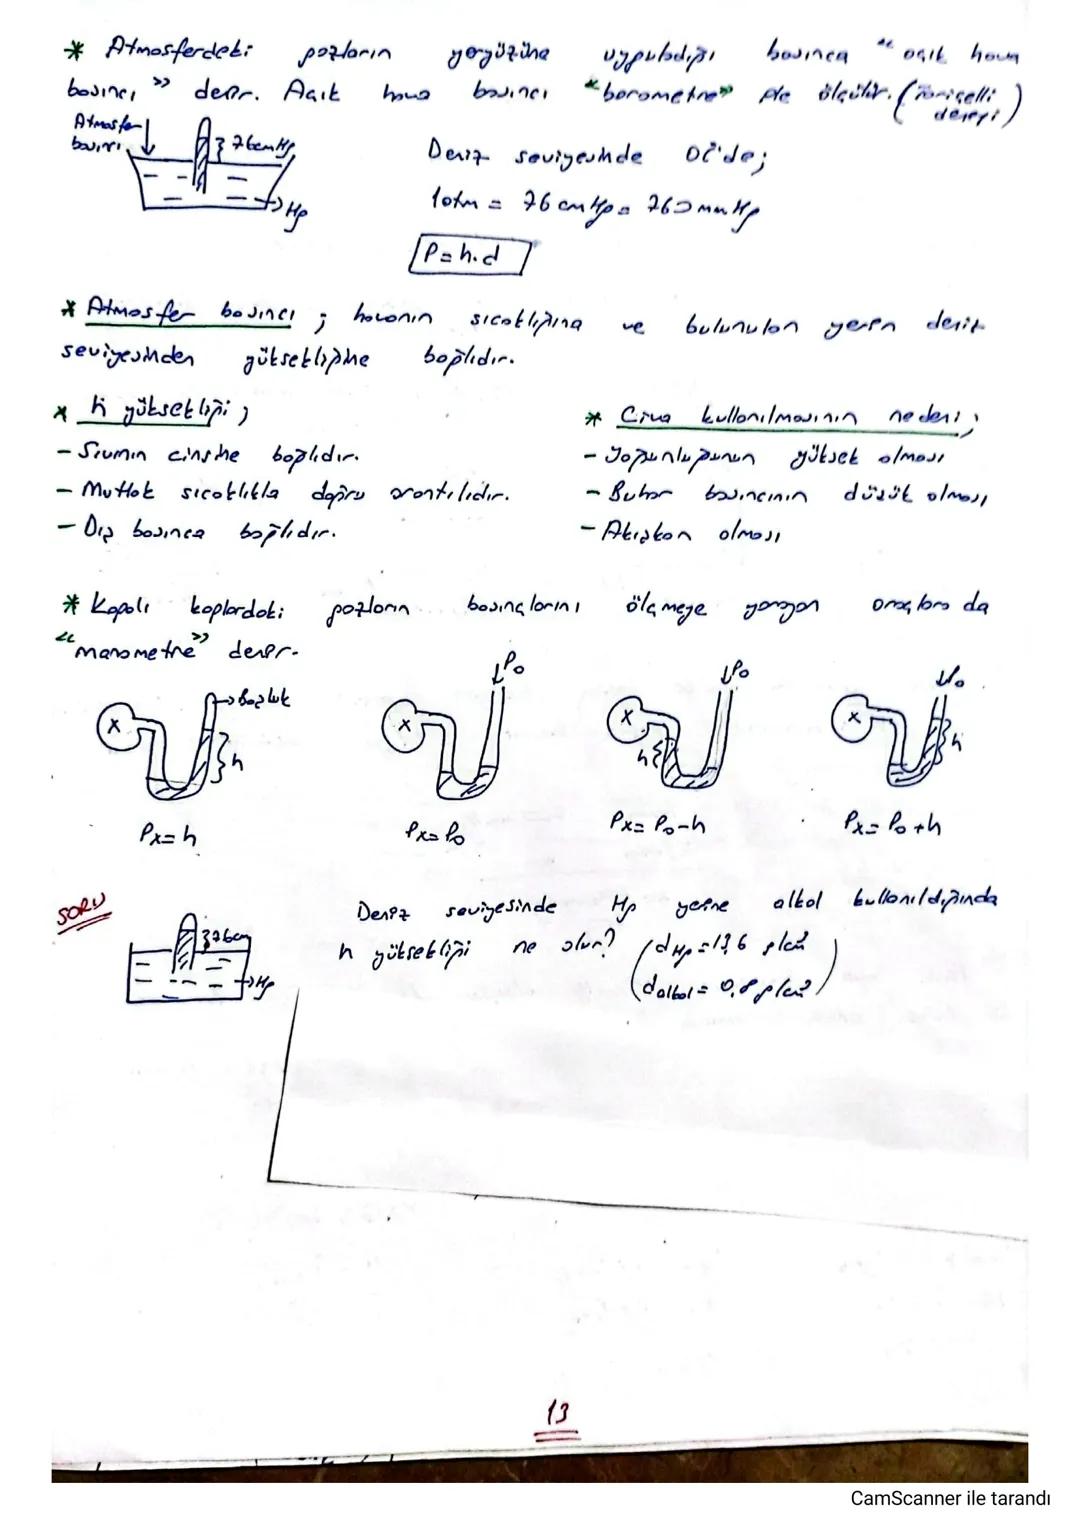 * Atmosferdeki gazların yeryüzüne uyguladığı basınca "açık hava
basıncı" denir. Açık hava basıncı "barometre" ile ölçülür. (Toriçelli deneyi)
Atmosfer basıncı
76 cmHg
Hg
Deniz seviyesinde 0°C'de;
1 atm = 76 cmHg = 760 mmHg
P = h.d
* Atmosfer basıncı ; havanın sıcaklığına ve bulunulan yerin deniz
seviyesinden yüksekliğine bağlıdır.
* h yüksekliği ;
- Sıvının cinsine bağlıdır.
- Mutlak sıcaklıkla doğru orantılıdır.
- Dış basınca bağlıdır.
* Civa kullanılmasının nedeni ;
- Yoğunluğunun yüksek olması
- Buhar basıncının düşük olması
- Akışkan olması
* Kapalı kaplardaki gazların basınçlarını ölçmeye yarayan araçlara da
"manometre" denir.
X Boşluk h
X P₀
X P₀ h
X P₀ h
Px = h
Px = P₀
Px = P₀ - h
Px = P₀ + h
SORU
76cm
Hg
Deniz seviyesinde Hg yerine alkol kullanıldığında
h yüksekliği ne olur? (dHg = 13,6 g/cm³
dalkol = 0,8 g/cm³)
13
CamScanner ile tarandı